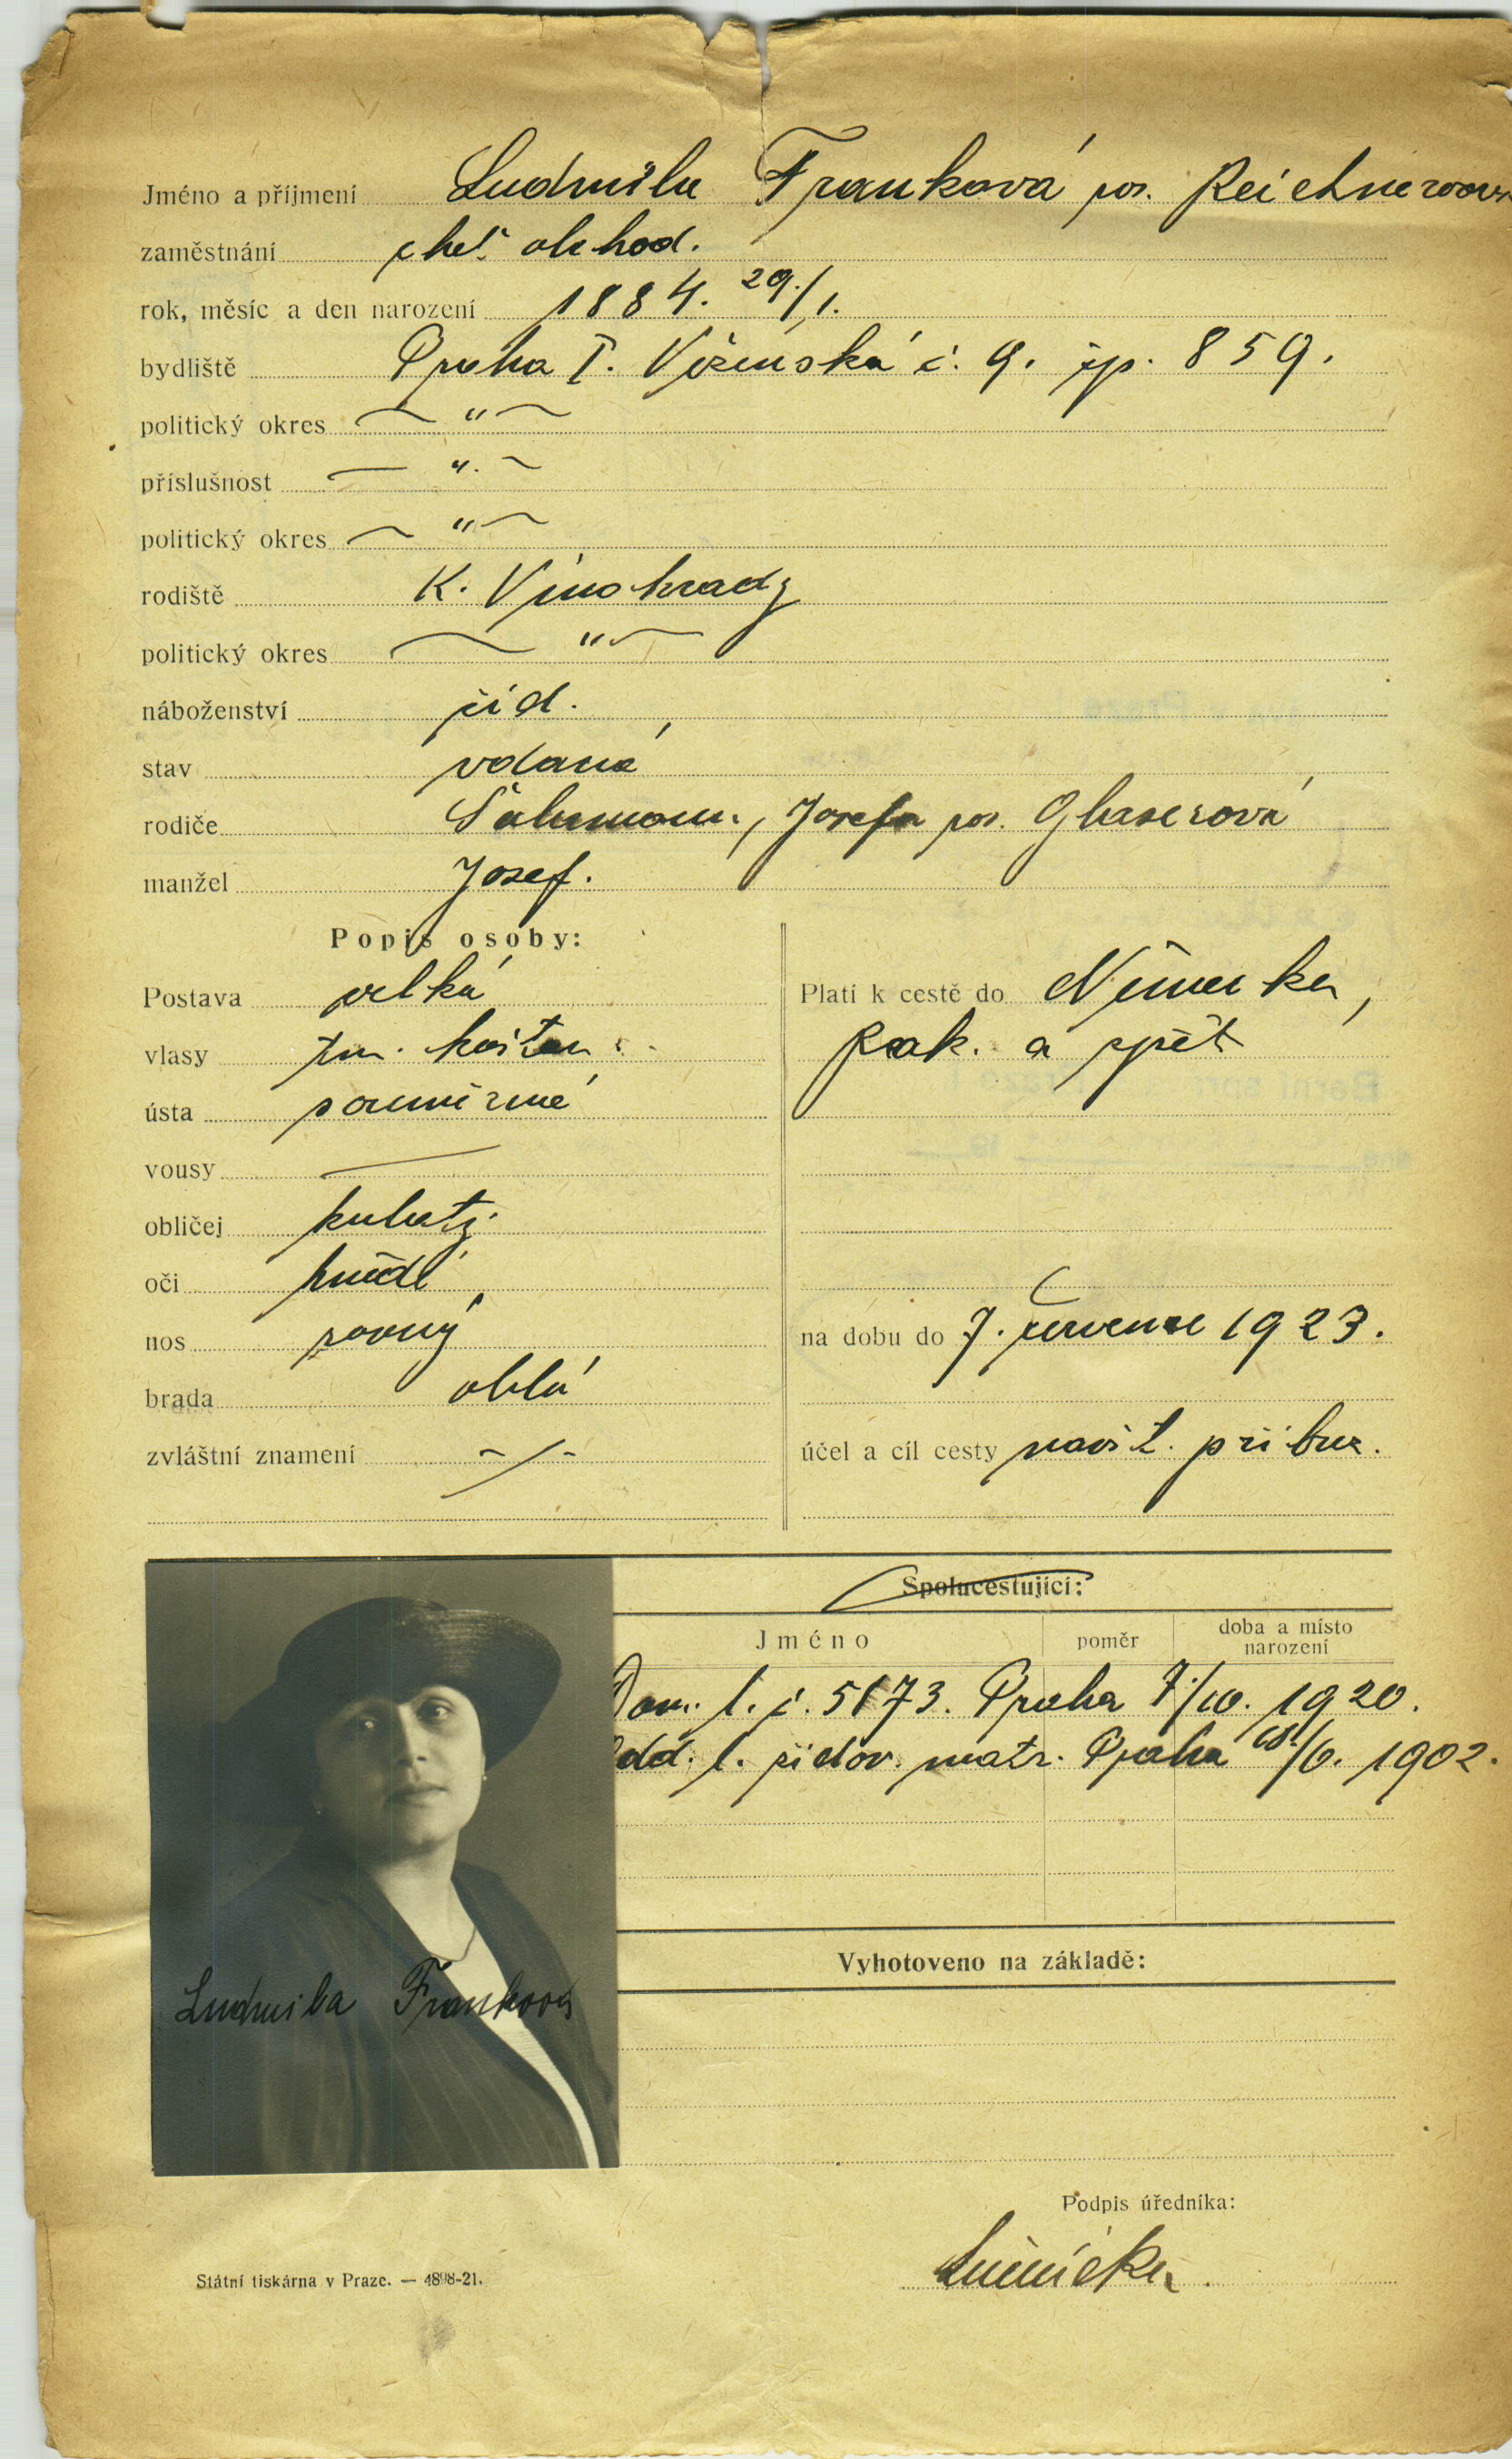 Jméno a příjmení Ludmila Franková roz. Reichnerová
zaměstnání choť obchod.
rok, měsíc a den narození 1884. 29./1.
bydliště Praha I. Vězeňská č. 9. čp. 859.
politický okres — " —
příslušnost — " —
politický okres — " —
rodiště K. Vinohrady
politický okres — " —
náboženství žid.
stav vdaná
rodiče Salomoun, Josefa roz. Glaserová
manžel Josef.
Popis osoby:
Postava velká
vlasy tm. kaštan.
ústa souměrné
vousy —
obličej kulatý
oči hnědé
nos rovný
brada oblá
zvláštní znamení -/-
Platí k cestě do Německa,
Rak. a zpět
na dobu do 7. července 1923.
účel a cíl cesty navšt. příbuz.
Spolucestující:
Jméno poměr doba a místo narození
Dom. l. č. 5173. Praha 7./10. 1920.
Odd. l. židov. matr. Praha /6. 1902.
Ludmila Franková
Vyhotoveno na základě:
Podpis úředníka:
Státní tiskárna v Praze. — 4898-21.